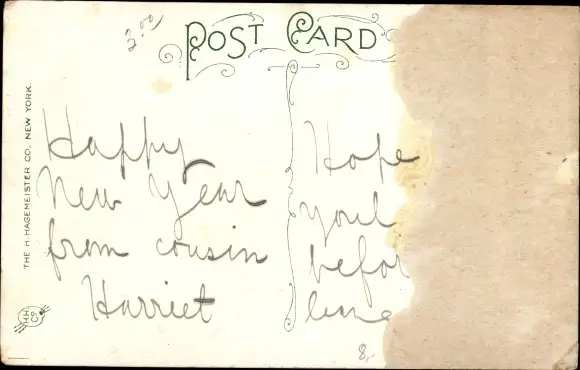 3.00
POST CARD
THE H. HAGEMEISTER CO., NEW YORK.
Happy
New Year
from cousin
Harriet
Hope
you'l
befor
H.H.
Co.
8,